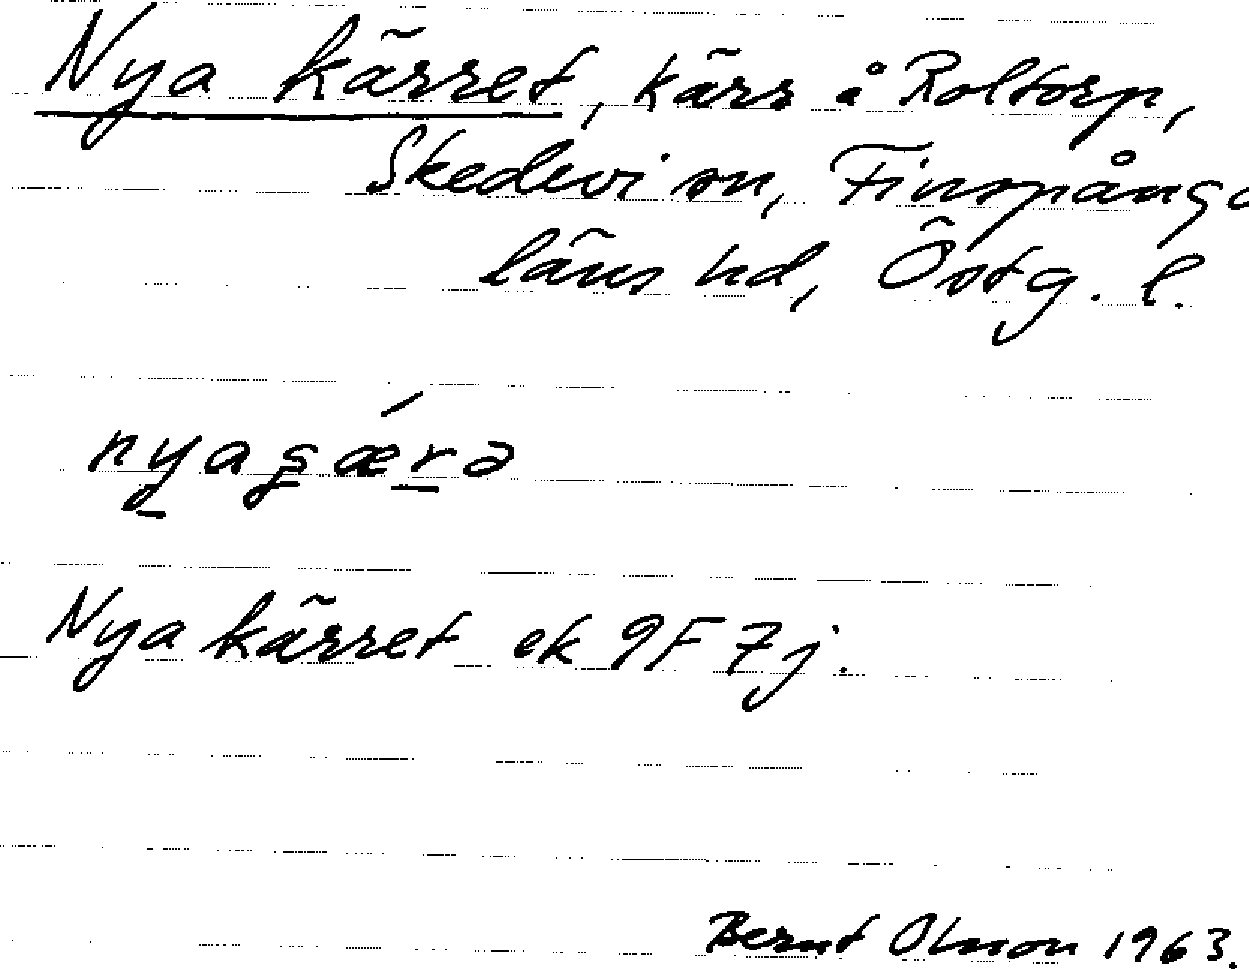 Nya kärret, kärr å Roltorp,
Skedevi sn, Finspånga
läns hd, Östg. l.
nyaꞔǽrə
Nya kärret ek 9F 7j.
Bernt Olsson 1963.